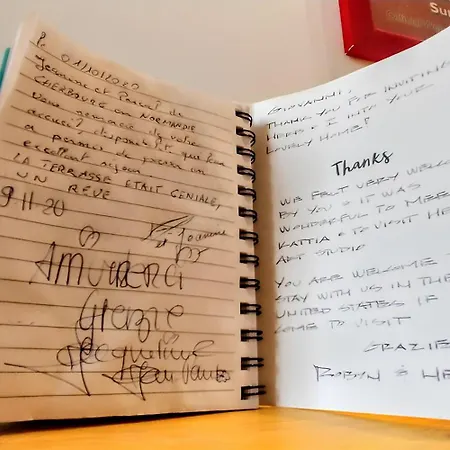 01/10/2020
Jeannine et Pascal de
CHERBOURG en NORMANDIE
vous remercie de votre
accueil, disponibilité qui nous
a permis de passer un
excellent séjour
LA TERRASSE ETAIT GENIALE,
UN REVE
Jeannine
9.11.20
Grazie
Jacqueline
Jean
Su
GIOVANNI,
THANK YOU FOR INVITING
HERB & I INTO YOUR
LOVELY HOME!
Thanks
WE FELT VERY WELCO
BY YOU & IT WAS
WONDERFUL TO MEE
KATTIA & TO VISIT HE
ART STUDIO
YOU ARE WELCOME T
STAY WITH US IN THE
UNITED STATES IF
COME TO VISIT
GRAZIE
ROBYN & HE